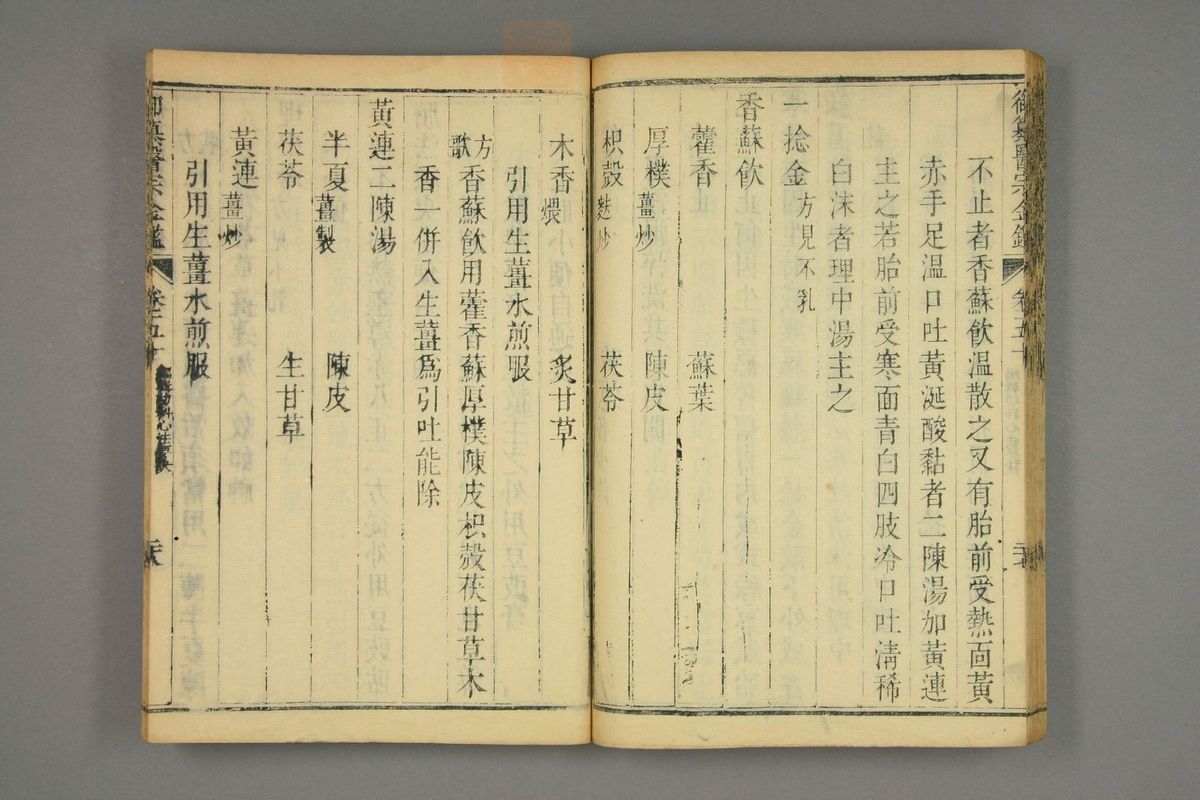 御纂醫宗金鑑 卷五十
不止者香蘇飲温散之又有胎前受熱面黃
赤手足温口吐黃涎酸黏者二陳湯加黃連
主之若胎前受寒面青白四肢冷口吐清稀
白沫者理中湯主之
一捻金方見不乳
香蘇飲
藿香 蘇葉
厚樸薑炒 陳皮
枳殼麩炒 茯苓
木香煨 炙甘草
引用生薑水煎服
方歌 香蘇飲用藿香蘇厚樸陳皮枳殼茯甘草木
香一併入生薑爲引吐能除
黃連二陳湯
半夏薑製 陳皮
茯苓 生甘草
黃連薑炒
引用生薑水煎服
御纂醫宗金鑑 卷五十 幼科心法要訣